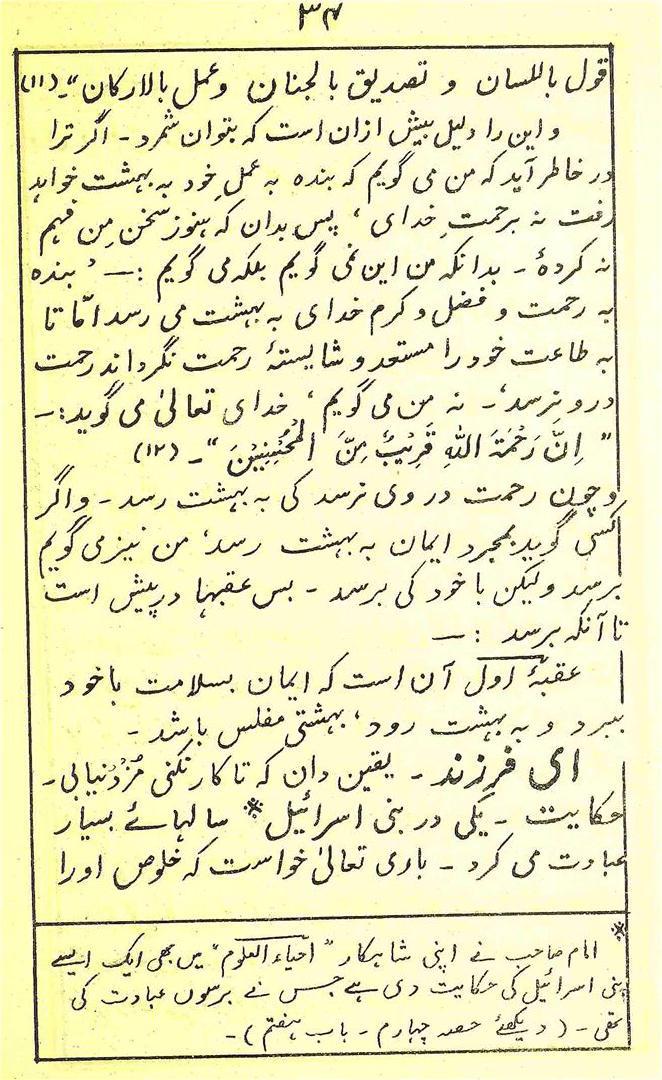 ۳۴
قول باللسان و تصدیق بالجنان وعمل بالارکان"۔ (۱۱)
و این را دلیل بیش ازان است که بتوان شمرد ۔ اگر ترا
در خاطر آید که من می گویم که بنده به عملِ خود به بهشت خواهد
رفت نه برحمتِ خدای ، پس بدان که هنوز سخنِ من فهم
نه کردهٔ ۔ بدانکه من این نمی گویم بلکه می گویم :— ' بنده
به رحمت و فضل و کرم خدای به بهشت می رسد امّا تا
به طاعت خود را مستعد و شایستهٔ رحمت نگرداند رحمت
درو نرسد'۔ نه من می گویم ، خدای تعالیٰ می گوید :—
" اِنَّ رَحْمَةَ اللهِ قَرِيْبٌ مِنَّ الْمُحْسِنِيْنَ "۔ (۱۲)
وچون رحمت در وی نرسد کی به بهشت رسد ۔ واگر
کسی گوید بمجرد ایمان به بهشت رسد، من نیز می گویم
برسد ولیکن با خود کی برسد ۔ بس عقبها در پیش است
تا آنکه برسد :—
عقبهٔ اول آن است که ایمان بسلامت با خود
ببرد و به بهشت رود ، بهشتی مفلس باشد ۔
ای فرزند ۔ یقین دان که تا کار نکنی مُزد نیابی ۔
حکایت ۔ یکی در بنی اسرائیل * سالہائے بسیار
عبادت می کرد ۔ باری تعالیٰ خواست که خلوص اورا
* امام صاحب نے اپنی شاہکار "احیاء العلوم" میں بھی ایک ایسے
بنی اسرائیل کی حکایت دی ہے جس نے برسوں عبادت کی
تھی ۔ (دیکھئے حصہ چہارم ۔ باب ہفتم) ۔